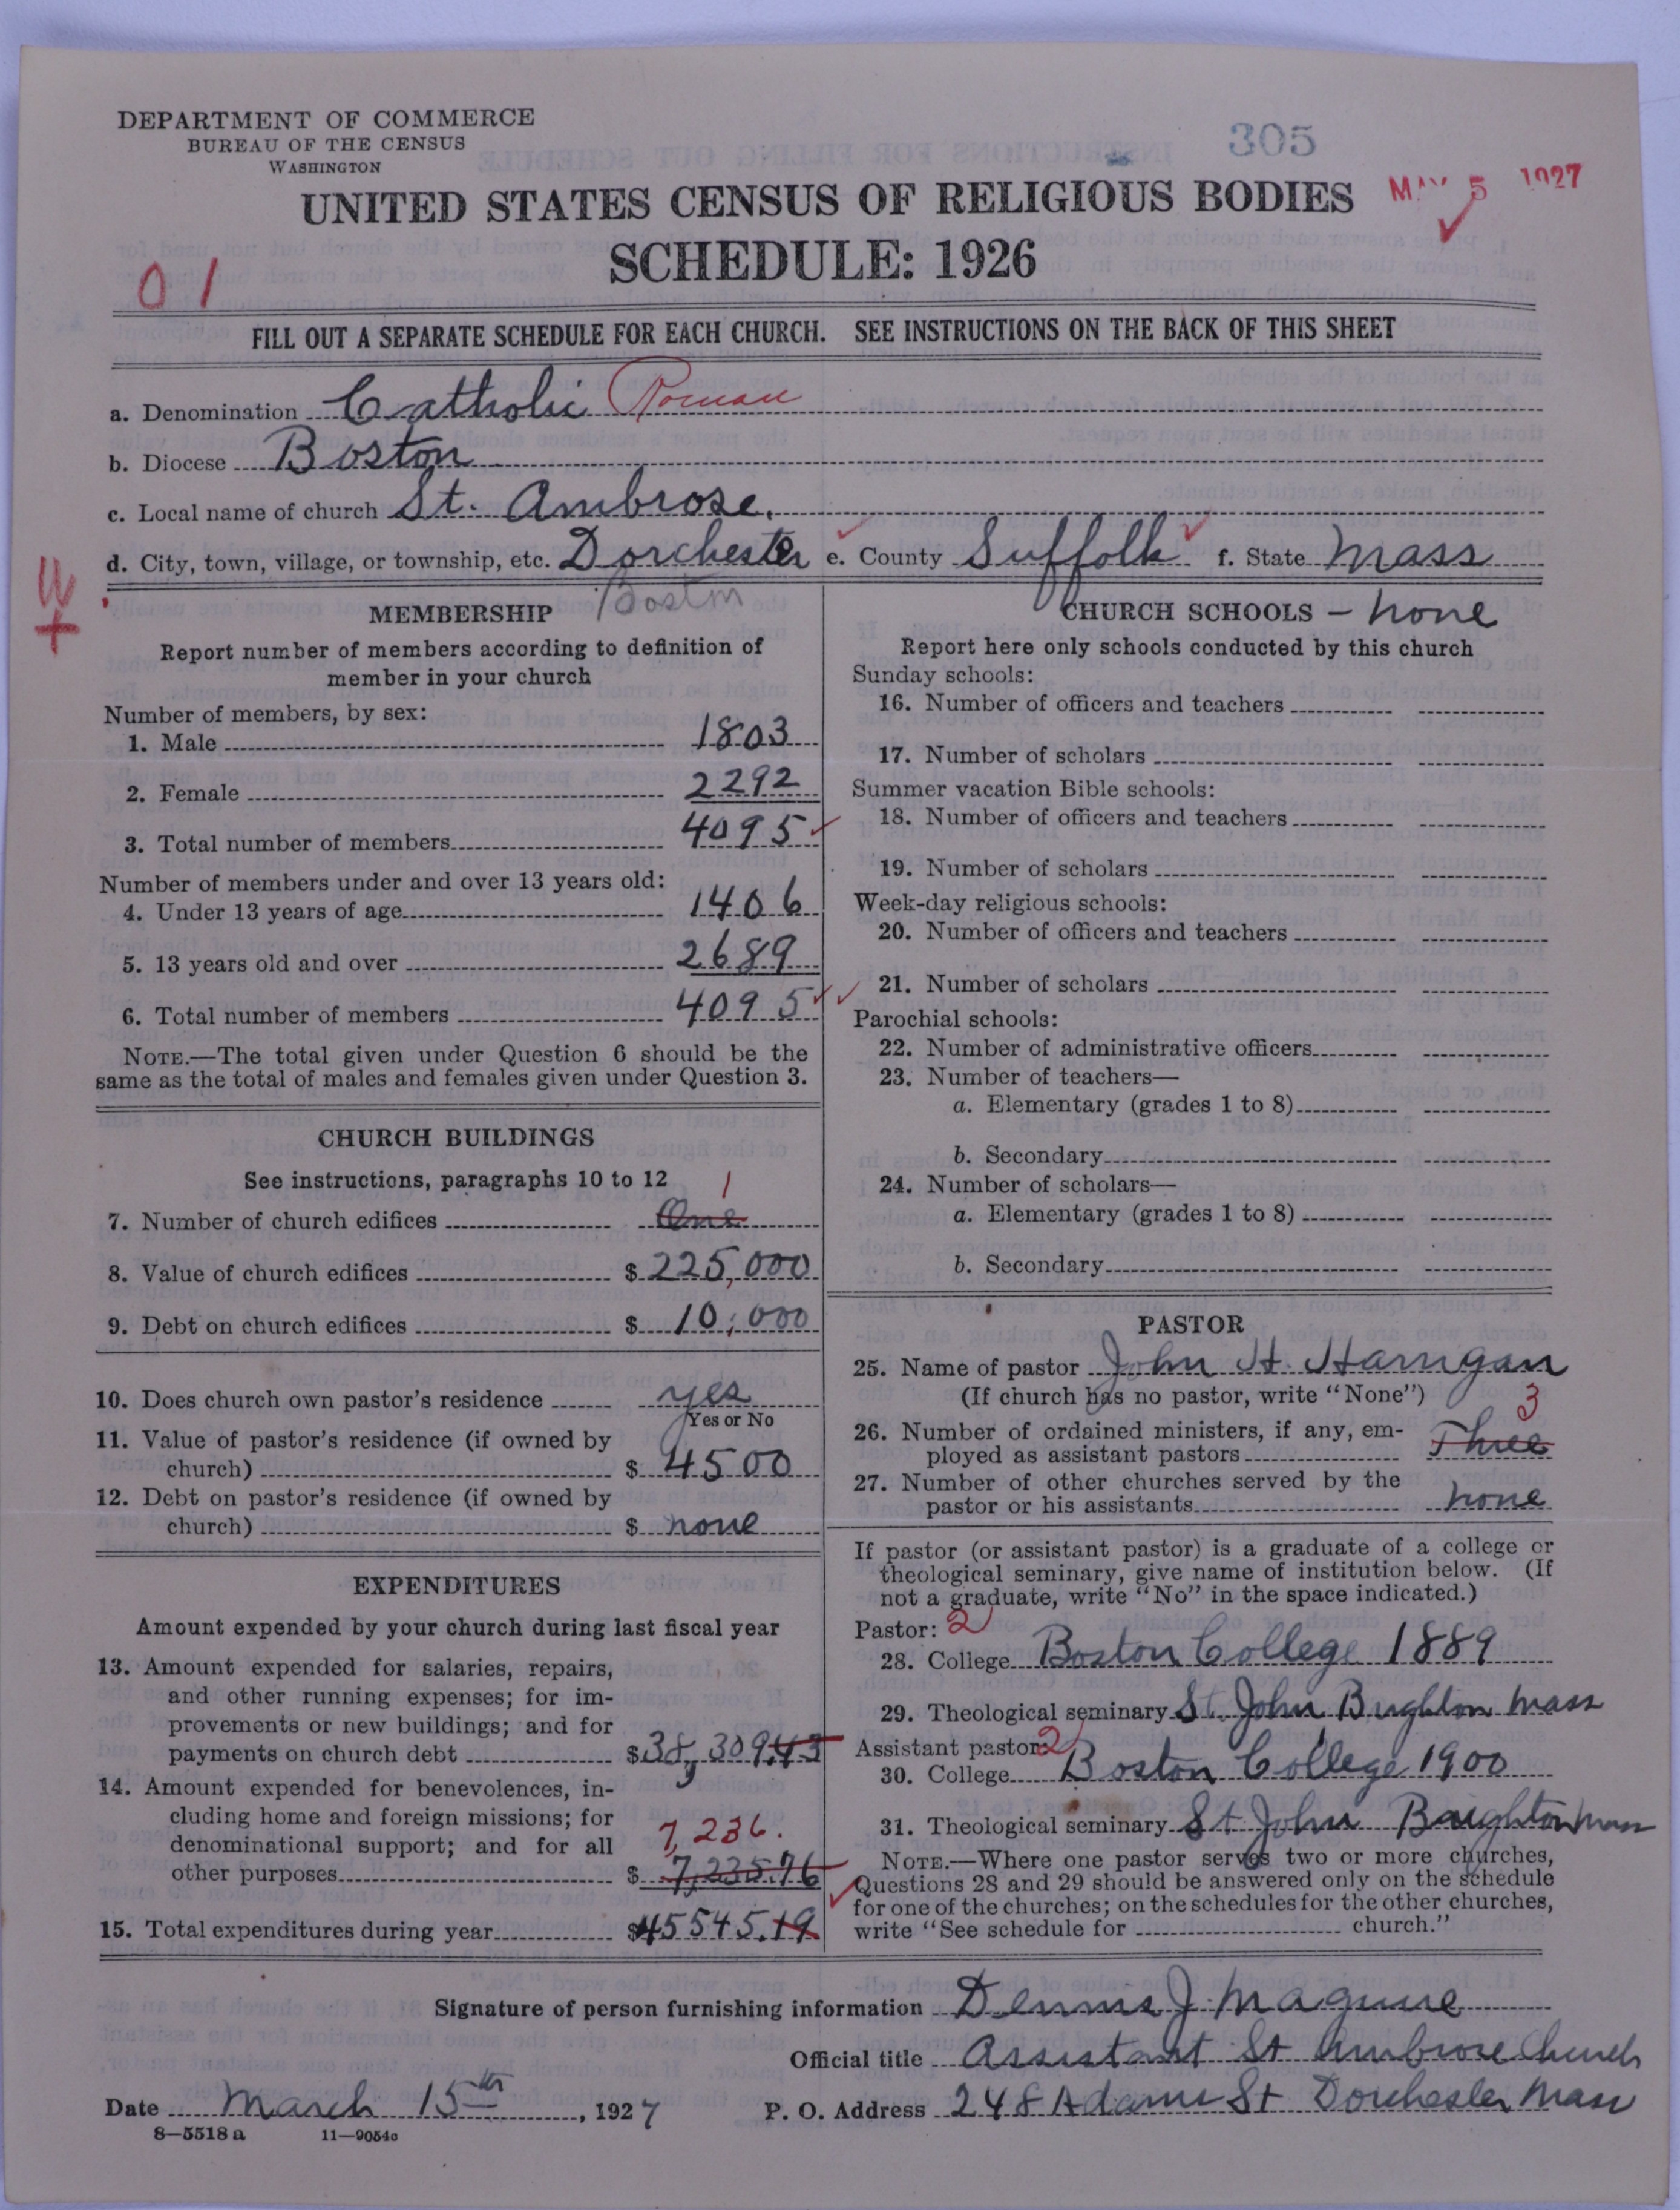 DEPARTMENT OF COMMERCE
BUREAU OF THE CENSUS
WASHINGTON
305
UNITED STATES CENSUS OF RELIGIOUS BODIES
MAY 5 1927
SCHEDULE: 1926
01
FILL OUT A SEPARATE SCHEDULE FOR EACH CHURCH. SEE INSTRUCTIONS ON THE BACK OF THIS SHEET
a. Denomination Catholic Roman
b. Diocese Boston
c. Local name of church St. Ambrose.
d. City, town, village, or township, etc. Dorchester e. County Suffolk f. State Mass
Boston
MEMBERSHIP
Report number of members according to definition of
member in your church
Number of members, by sex:
1. Male 1803
2. Female 2292
3. Total number of members 4095
Number of members under and over 13 years old:
4. Under 13 years of age 1406
5. 13 years old and over 2689
6. Total number of members 4095
NOTE.—The total given under Question 6 should be the
same as the total of males and females given under Question 3.
CHURCH BUILDINGS
See instructions, paragraphs 10 to 12
1
7. Number of church edifices One
8. Value of church edifices $ 225,000
9. Debt on church edifices $ 10,000
10. Does church own pastor's residence yes
Yes or No
11. Value of pastor's residence (if owned by
church) $ 4500
12. Debt on pastor's residence (if owned by
church) $ none
EXPENDITURES
Amount expended by your church during last fiscal year
13. Amount expended for salaries, repairs,
and other running expenses; for im-
provements or new buildings; and for
payments on church debt $ 38,309.43
14. Amount expended for benevolences, in-
cluding home and foreign missions; for
denominational support; and for all
7,236.
other purposes $ 7,235.76
15. Total expenditures during year $ 45545.19
CHURCH SCHOOLS – none
Report here only schools conducted by this church
Sunday schools:
16. Number of officers and teachers
17. Number of scholars
Summer vacation Bible schools:
18. Number of officers and teachers
19. Number of scholars
Week-day religious schools:
20. Number of officers and teachers
21. Number of scholars
Parochial schools:
22. Number of administrative officers
23. Number of teachers—
a. Elementary (grades 1 to 8)
b. Secondary
24. Number of scholars—
a. Elementary (grades 1 to 8)
b. Secondary
PASTOR
25. Name of pastor John H. Harrigan
(If church has no pastor, write "None")
3
26. Number of ordained ministers, if any, em-
ployed as assistant pastors Three
27. Number of other churches served by the
pastor or his assistants none
If pastor (or assistant pastor) is a graduate of a college or
theological seminary, give name of institution below. (If
not a graduate, write "No" in the space indicated.)
Pastor: 2
28. College Boston College 1889
29. Theological seminary St. John Brighton Mass
Assistant pastor: 2
30. College Boston College 1900
31. Theological seminary St John Brighton Mass
NOTE.—Where one pastor serves two or more churches,
Questions 28 and 29 should be answered only on the schedule
for one of the churches; on the schedules for the other churches,
write "See schedule for church."
Signature of person furnishing information Dennis J. Maguire
Official title Assistant St Ambrose Church
Date March 15th, 1927 P. O. Address 248 Adams St Dorchester Mass
8—5518 a 11—9054c